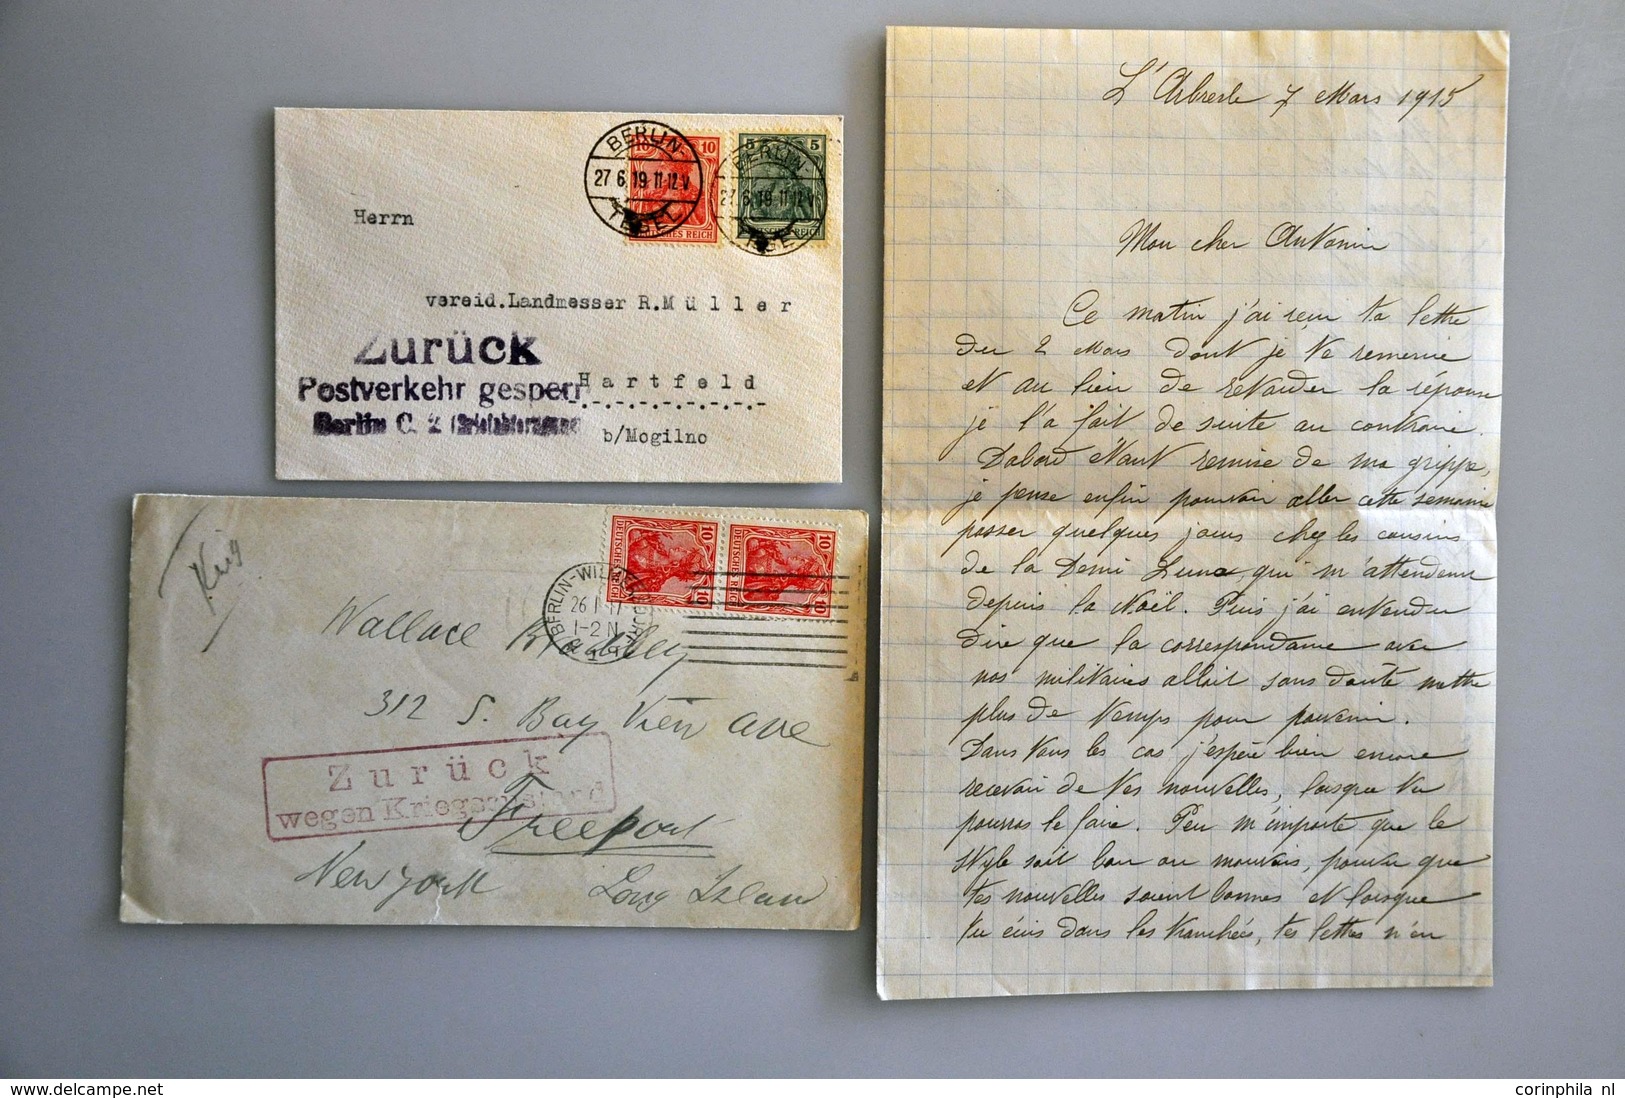 BERLIN-
27 6.19.11-12V
TEGEL
10 10
DEUTSCHES REICH
BERLIN-
27.6.19.11-12V
TEGEL
5 5
DEUTSCHES REICH
Herrn
vereid.Landmesser R.Müller
Zurück
Postverkehr gesperrt
Berlin C. 2 (Briefabfertigung)
Hartfeld
-.-.-.-.-.-.-.-
b/Mogilno
10 10
DEUTSCHES REICH
10 10
DEUTSCHES REICH
BERLIN-WILMERSDORF
26.1.17
1-2 N
Wallace Bradley
312 S. Bay View ave
Zurück
wegen Kriegszustand
Freeport
New york Long Islan
L'Arbresle 7 Mars 1915
Mon cher Antonin
Ce matin j'ai reçu ta lettre
du 2 Mars dont je te remercie
et au lieu de retarder la réponse
je l'a fait de suite au contraire.
Dabord étant remise de ma grippe,
je pense enfin pouvoir aller cette semaine
passer quelques jours chez les cousins
de la Demi Lune, qui m'attendent
depuis la Noël. Puis j'ai entendu
dire que la correspondance avec
nos militaires allait sans doute mettre
plus de temps pour parvenir.
Dans tous les cas j'espère bien encore
recevoir de tes nouvelles, lorsque tu
pourras le faire. Peu m'importe que le
style soit bon ou mauvais, pourvu que
tes nouvelles soient bonnes et lorsque
tu écris dans les tranchées, tes lettres n'en
corinphila nl